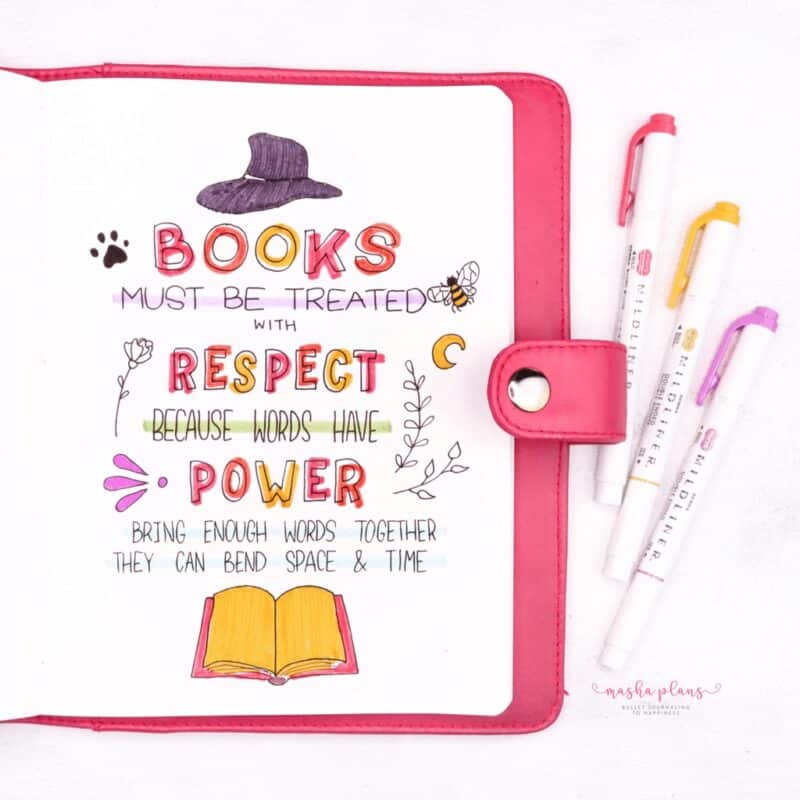 BOOKS
MUST BE TREATED
WITH
RESPECT
BECAUSE WORDS HAVE
POWER
BRING ENOUGH WORDS TOGETHER
THEY CAN BEND SPACE & TIME
MILDLINER
MILDLINER
MILDLINER
masha plans
BULLET JOURNALING
TO HAPPINESS